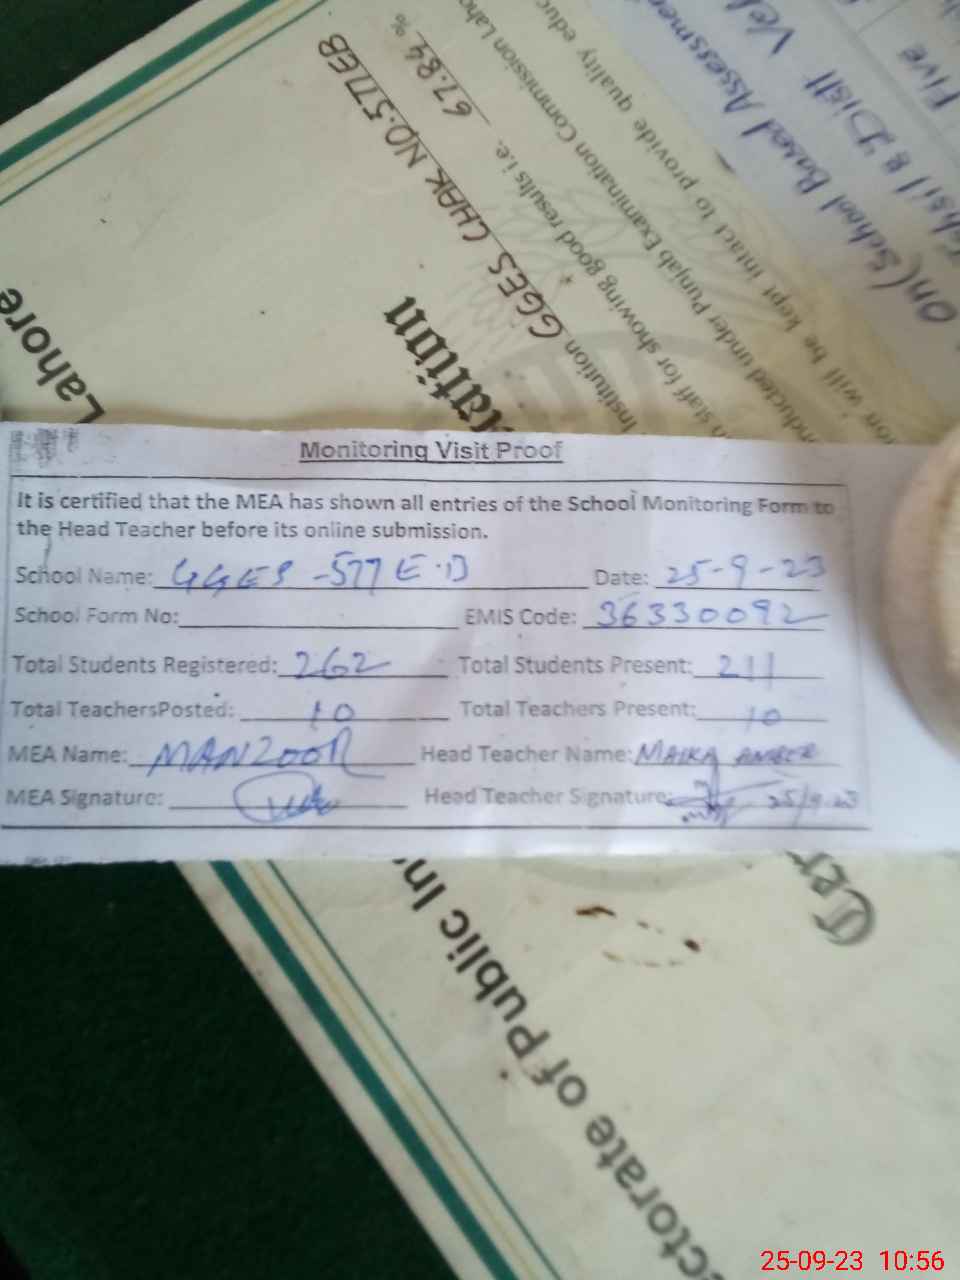 Monitoring Visit Proof
It is certified that the MEA has shown all entries of the School Monitoring Form to
the Head Teacher before its online submission.
School Name: GGES -577 E.B Date: 25-9-23
School Form No: EMIS Code: 36330092
Total Students Registered: 262 Total Students Present: 211
Total TeachersPosted: 10 Total Teachers Present: 10
MEA Name: MANZOOR Head Teacher Name: MAIKA AMBER
MEA Signature: Head Teacher Signature: 25/9.23
Lahore
Institution GGES CHAK NO.577/EB
staff for showing good results i.e. 67.84 %
nducted under Punjab Examination Commission Laho
will be kept intact to provide quality educ
On (School Based Assesmen
Tehsil & Distt Veh
Five
ectorate of Public In
25-09-23 10:56